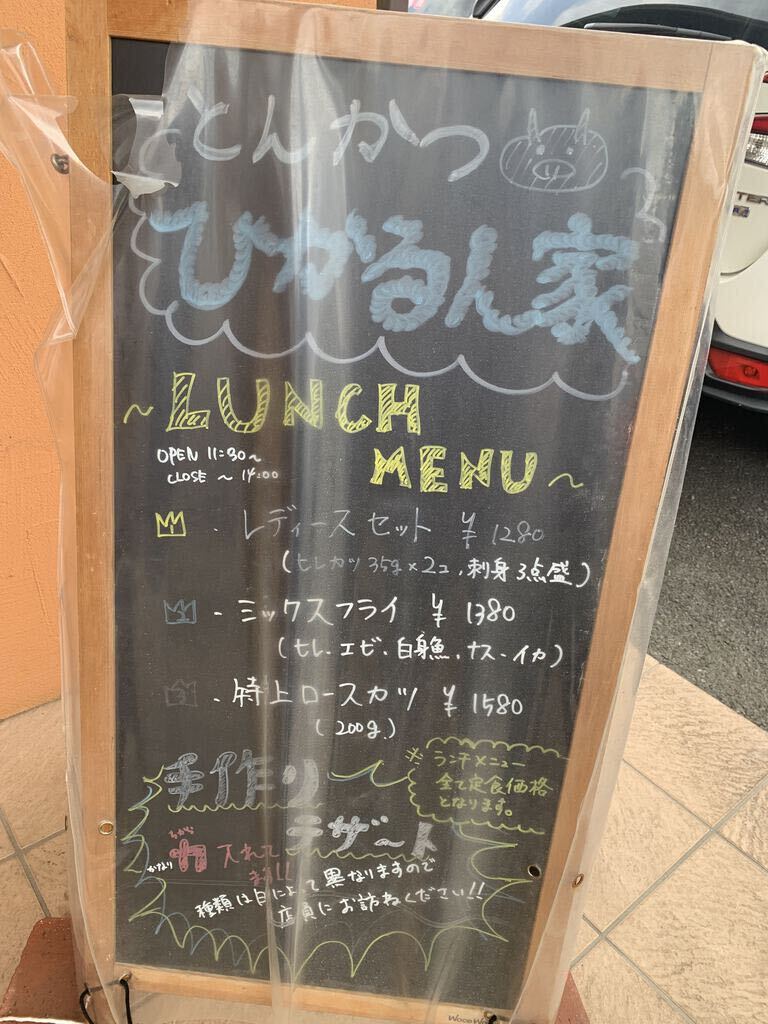 とんかつ
ひかるん家
~ LUNCH
MENU ~
OPEN 11:30~
CLOSE ~ 14:00
1 ・レディースセット ¥1280
(ヒレカツ 35g×2コ、刺身3点盛)
2 ・ミックスフライ ¥1380
(ヒレ、エビ、白身魚、ナス、イカ)
3 ・特上ロースカツ ¥1580
(200g)
手作り
デザート
※ランチメニュー
全て定食価格
となります。
かなり 力 ちから 入れて
ます!!
種類は日によって異なりますので
店員にお訪ねください!!